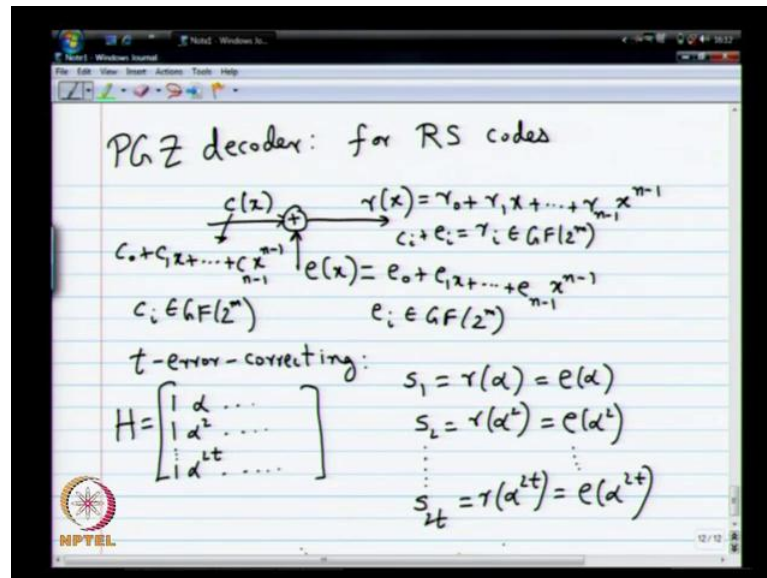 Note1 - Windows Jo...
16:12
Note1 - Windows Journal
File Edit View Insert Actions Tools Help
PGZ decoder: for RS codes
c(x) + r(x) = r₀ + r₁x + ··· + rₙ₋₁xⁿ⁻¹
cᵢ + eᵢ = rᵢ ∈ GF(2ᵐ)
c₀ + c₁x + ··· + cₙ₋₁xⁿ⁻¹
e(x) = e₀ + e₁x + ··· + eₙ₋₁xⁿ⁻¹
cᵢ ∈ GF(2ᵐ) eᵢ ∈ GF(2ᵐ)
t-error-correcting:
H = [ 1 α ...
1 α² ....
⋮
1 α²ᵗ ..... ]
S₁ = r(α) = e(α)
S₂ = r(α²) = e(α²)
⋮ ⋮
S₂ₜ = r(α²ᵗ) = e(α²ᵗ)
NPTEL
12/12